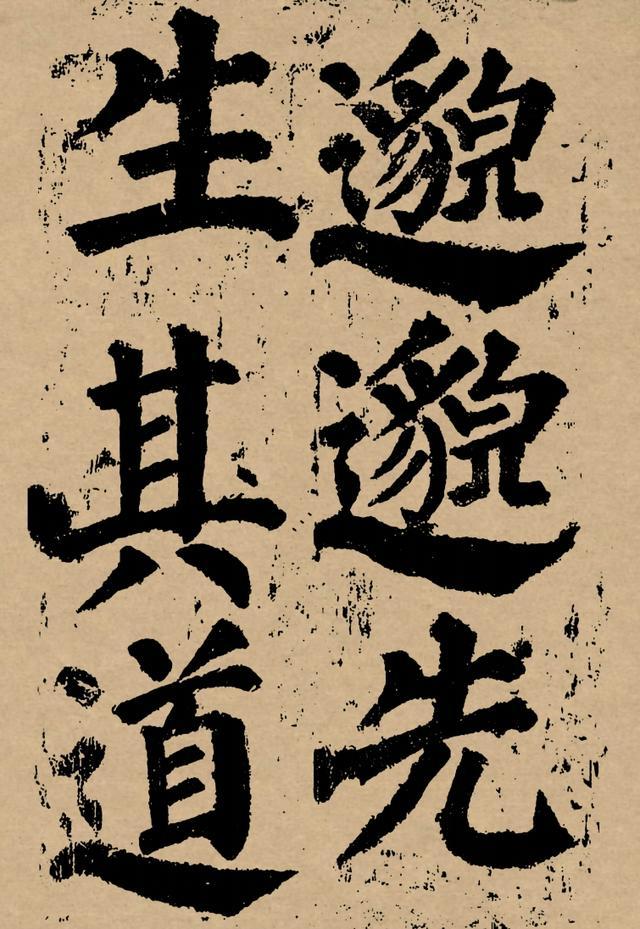 邈邈先
生其道